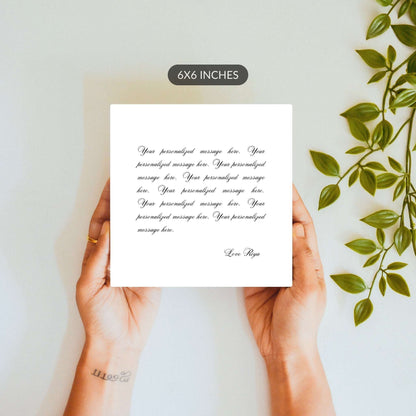 6X6 INCHES
Your personalized message here. Your
personalized message here. Your personalized
message here. Your personalized message
here. Your personalized message here.
Your personalized message here. Your
personalized message here. Your personalized
message here.
Love Riya